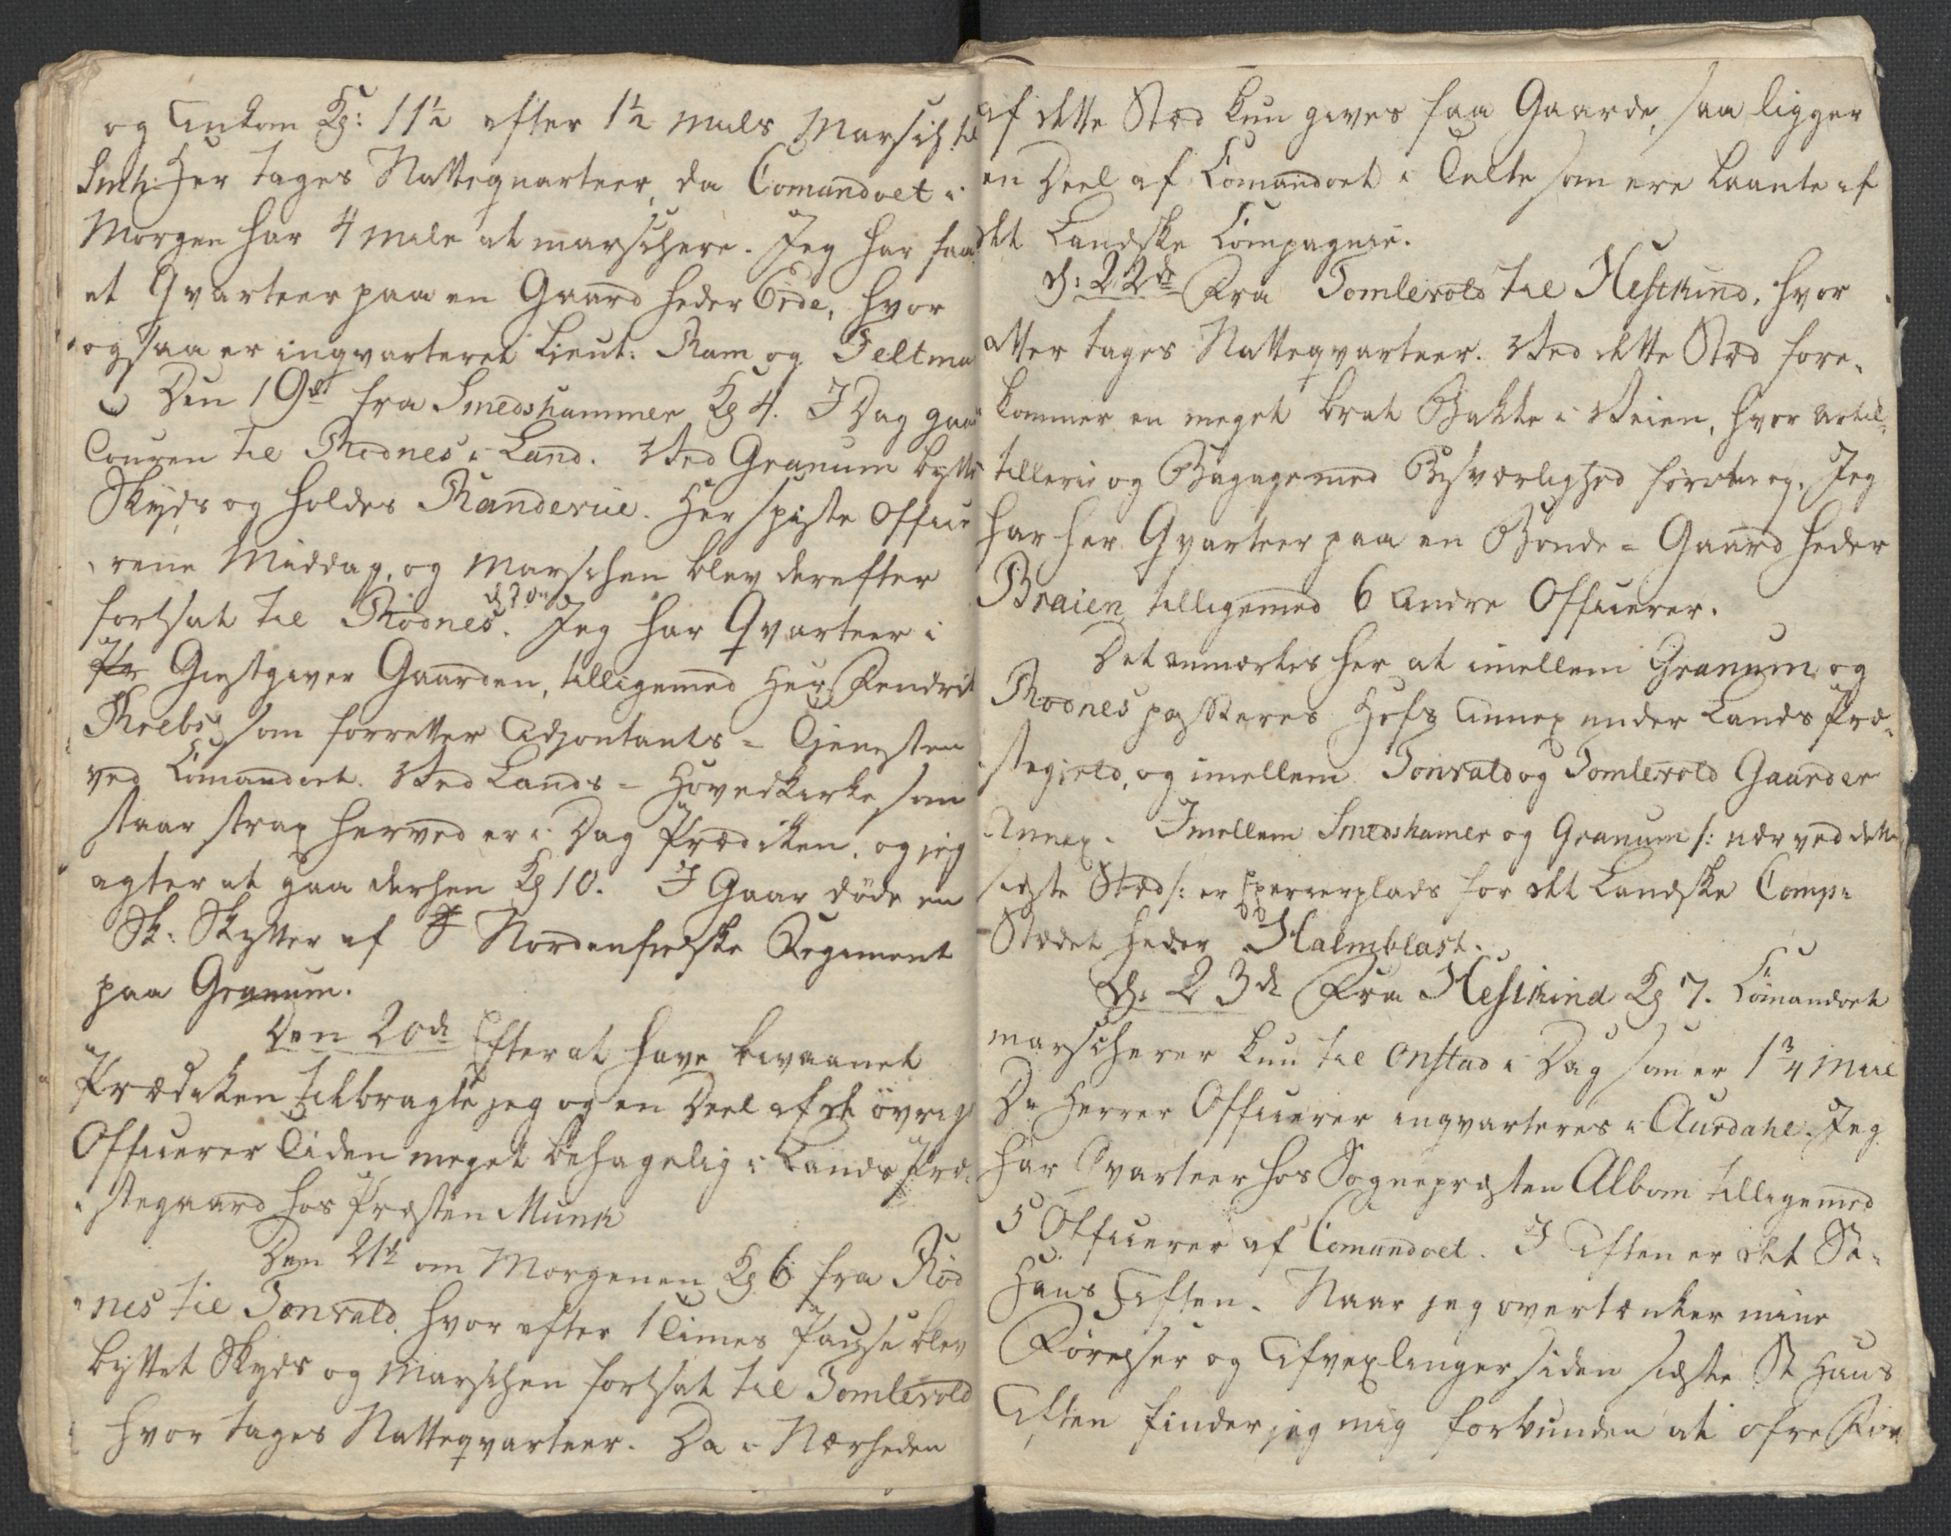 og Ankom Kl: 11½ efter 1½ Miils Marsch til
Smh: Her tages Natteqvarteer, da Comandoet i
Morgen har 4 Mile at marschere. Jeg har faaet
et Qvarteer paa en Gaard heder Orde, hvor
ogsaa er inqvarteret Lieut: Ram og Feltma
Den 19de fra Smedshammer Kl 4. I Dag gaar
Couren til Rødnes i Land. Ved Granum byttes
Skyds og holdes Randevue. Her spiste Officie
rene Middag, og Marschen blev derefter
fortsat til Rödnes. d 20de Jeg har Qvarteer i
Giestgiver Gaarden, tilligemed Her Fendrik
Krebs, som forretter Adjoutants-Tjenesten
ved Comandoet. Ved Lands-Hovedkirke som
staar strax herved er i Dag Prædiken, og jeg
agter at gaa derhen Kl 10. I Gaar døde en
Sk: Skytter af Nordenfieldske Regiment
paa Granum.
Den 20de Efter at have bivaanet
Prædiken tilbragte jeg og en Deel af de övrige
Officierer Tiden meget behagelig i Lands Præ-
stegaard hos Præsten Munk
Den 21de om Morgenen Kl 6 fra Röd
nes til Tonvald, hvor efter 1 Times Pause blev
byttet Skyds og Marschen fortsat til Tomlevold
hvor tages Natteqvarteer. Da i Nærheden
af dette Stæd kun gives faa Gaarde, saa ligger
en Deel af Comandoet i Telte som ere laante af
det Landske Compagnie.
d: 22de Fra Tomlevold til Hestkind, hvor
atter tages Natteqvarteer. Ved dette Stæd fore-
kommer en meget brat Bakke i Veien, hvor Artil-
lerie og Bagage med Besværlighed Jeg
har her Qvarteer paa en Bonde-Gaard heder
Braien tilligemed 6 andre Officierer.
Det anmærkes her at imellem Granum og
Rodnes passeres Hofs Annex under Lands Præ-
stegield, og imellem Tonvald og Tomlevold Gaarder
Annex. Imellem Smedshamer og Granum /: nær ved dette
sidste Stæd :/ er Exerceerplads for det Landske Comp:
Stædet heder Halmblast.
d: 23de Fra Hestkind Kl 7. Comandoet
marscherer kun til Onstad i Dag som er 1¾ Miil
De Herrer Officierer inqvarteres i Aurdahl. Jeg
har Qvarteer hos Sognepræsten Albom tilligemed
5 Officierer af Comandoet. I Aften er det St-
Hans Aften. Naar jeg overtænker mine
Förelser og Afvexlinger siden sidste St Hans
Aften finder jeg mig forbunden at ofre For